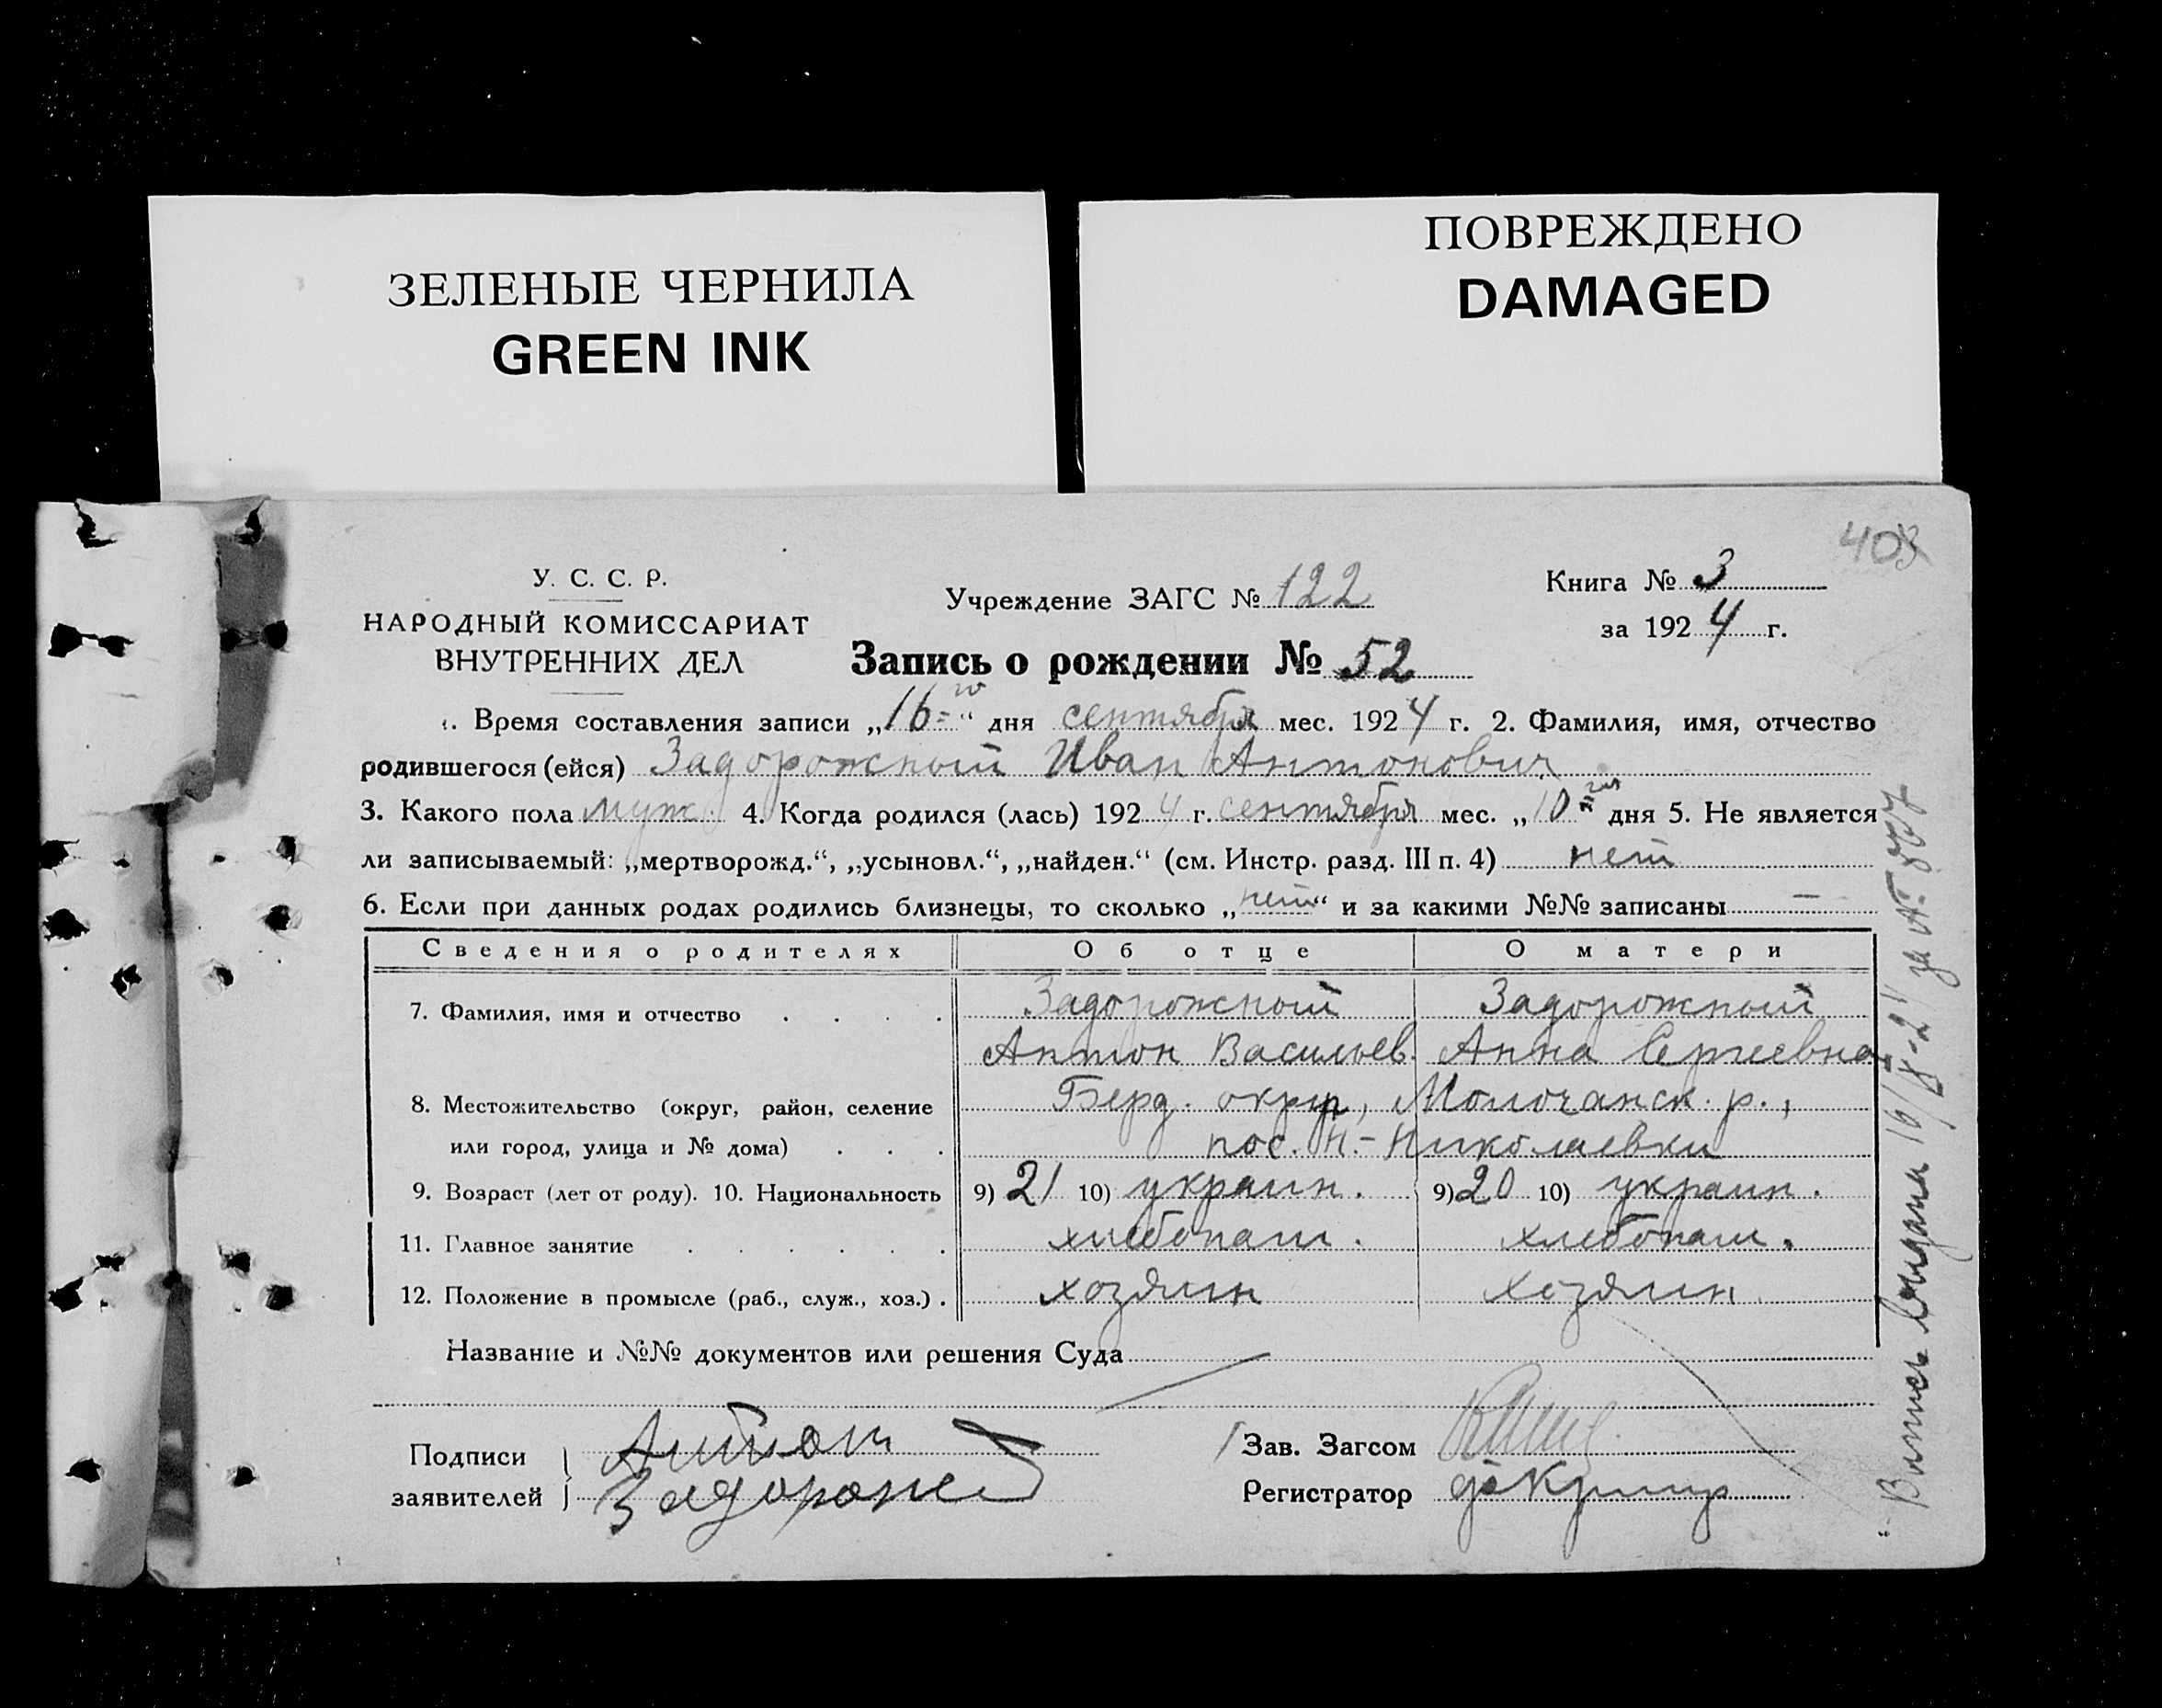 ЗЕЛЕНЫЕ ЧЕРНИЛА
GREEN INK
ПОВРЕЖДЕНО
DAMAGED
403
У. С. С. Р.
НАРОДНЫЙ КОМИССАРИАТ
ВНУТРЕННИХ ДЕЛ
Учреждение ЗАГС № 122
Книга № 3
за 1924 г.
Запись о рождении № 52
1. Время составления записи „16-го“ дня сентября мес. 1924 г. 2. Фамилия, имя, отчество
родившегося (ейся) Задорожный Иван Антонович
3. Какого пола муж. 4. Когда родился (лась) 1924 г. сентября мес. „10-го дня 5. Не является
ли записываемый: „мертворожд.“, „усыновл.“, „найден.“ (см. Инстр. разд. III п. 4) нет
6. Если при данных родах родились близнецы, то сколько „нет“ и за какими №№ записаны —
Сведения о родителях Об отце О матери
7. Фамилия, имя и отчество . . . . Задорожный Задорожный
Антон Васильев. Анна Сергеевна
8. Местожительство (округ, район, селение Берд. округ, Молочанск. р.,
или город, улица и № дома) . . . пос. Н.-Николаевки
9. Возраст (лет от роду). 10. Национальность 9) 21 10) украин. 9) 20 10) украин.
11. Главное занятие . . . . . . хлебопаш. хлебопаш.
12. Положение в промысле (раб., служ., хоз.) . хозяин хозяин
Название и №№ документов или решения Суда
Подписи Антон
заявителей Задорожный
Зав. Загсом
Регистратор
Выпись выдана за №